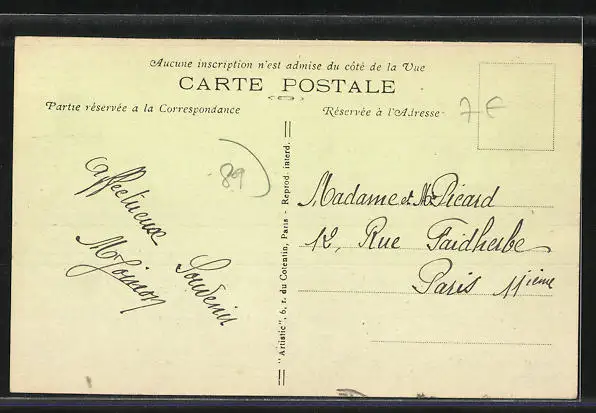 Aucune inscription n'est admise du côté de la Vue
CARTE POSTALE
Partie réservée a la Correspondance
Réservée à l'Adresse
7 E
89
Affectueux
Souvenir
Madame et Mr Picard
12, Rue Faidherbe
Paris 11ième
"Artistic", 6, r. du Colentin, Paris - Reprod. interd.